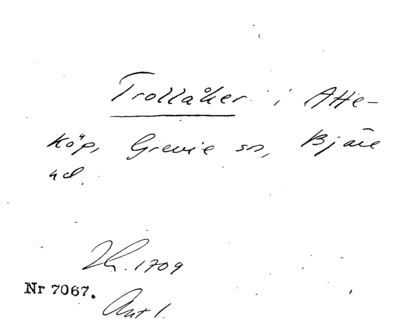 Trollåker i Atte-
köp, Grevie sn, Bjäre
hd.
1709
Nr 7067.
Ant 1.